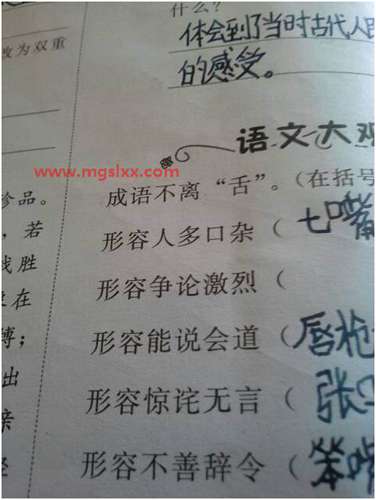 什么?
体会到了当时古代人
的感受。
改为双重
语文大观
www.mgslxx.com
成语不离“舌”。(在括号
珍品。
形容人多口杂(七嘴
,若
形容争论激烈(
战胜
在
形容能说会道(唇枪
博;
出
形容惊诧无言(张口
亲
形容不善辞令(笨嘴